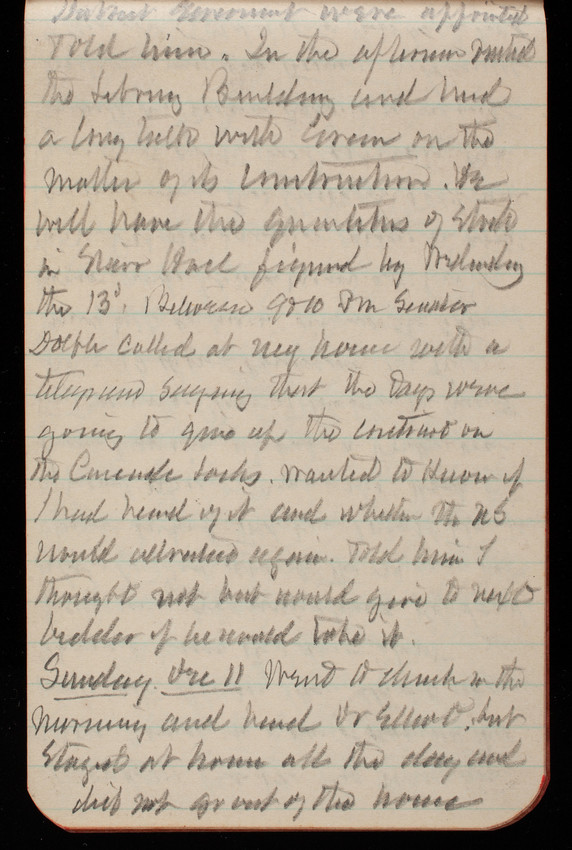 District Government were appointed
Told him. In the afternoon visited
the Library Building and had
a long talk with Green on the
matter of its construction. He
will have the quantities of Steel
in Stair Hall figured by Wednesday
the 13d. Between 9 & 10 PM Senator
Dolph called at my house with a
telegram saying that the Days were
going to give up the contract on
the Cascade Locks. Wanted to know if
I had heard of it and whether the US
would advertise again. Told him I
thought not but would give to next
bidder if he would take it.
Sunday. Dec 11 Went to church in the
morning and heard Dr Elliott. but
Stayed at home all the day and
did not go out of the house